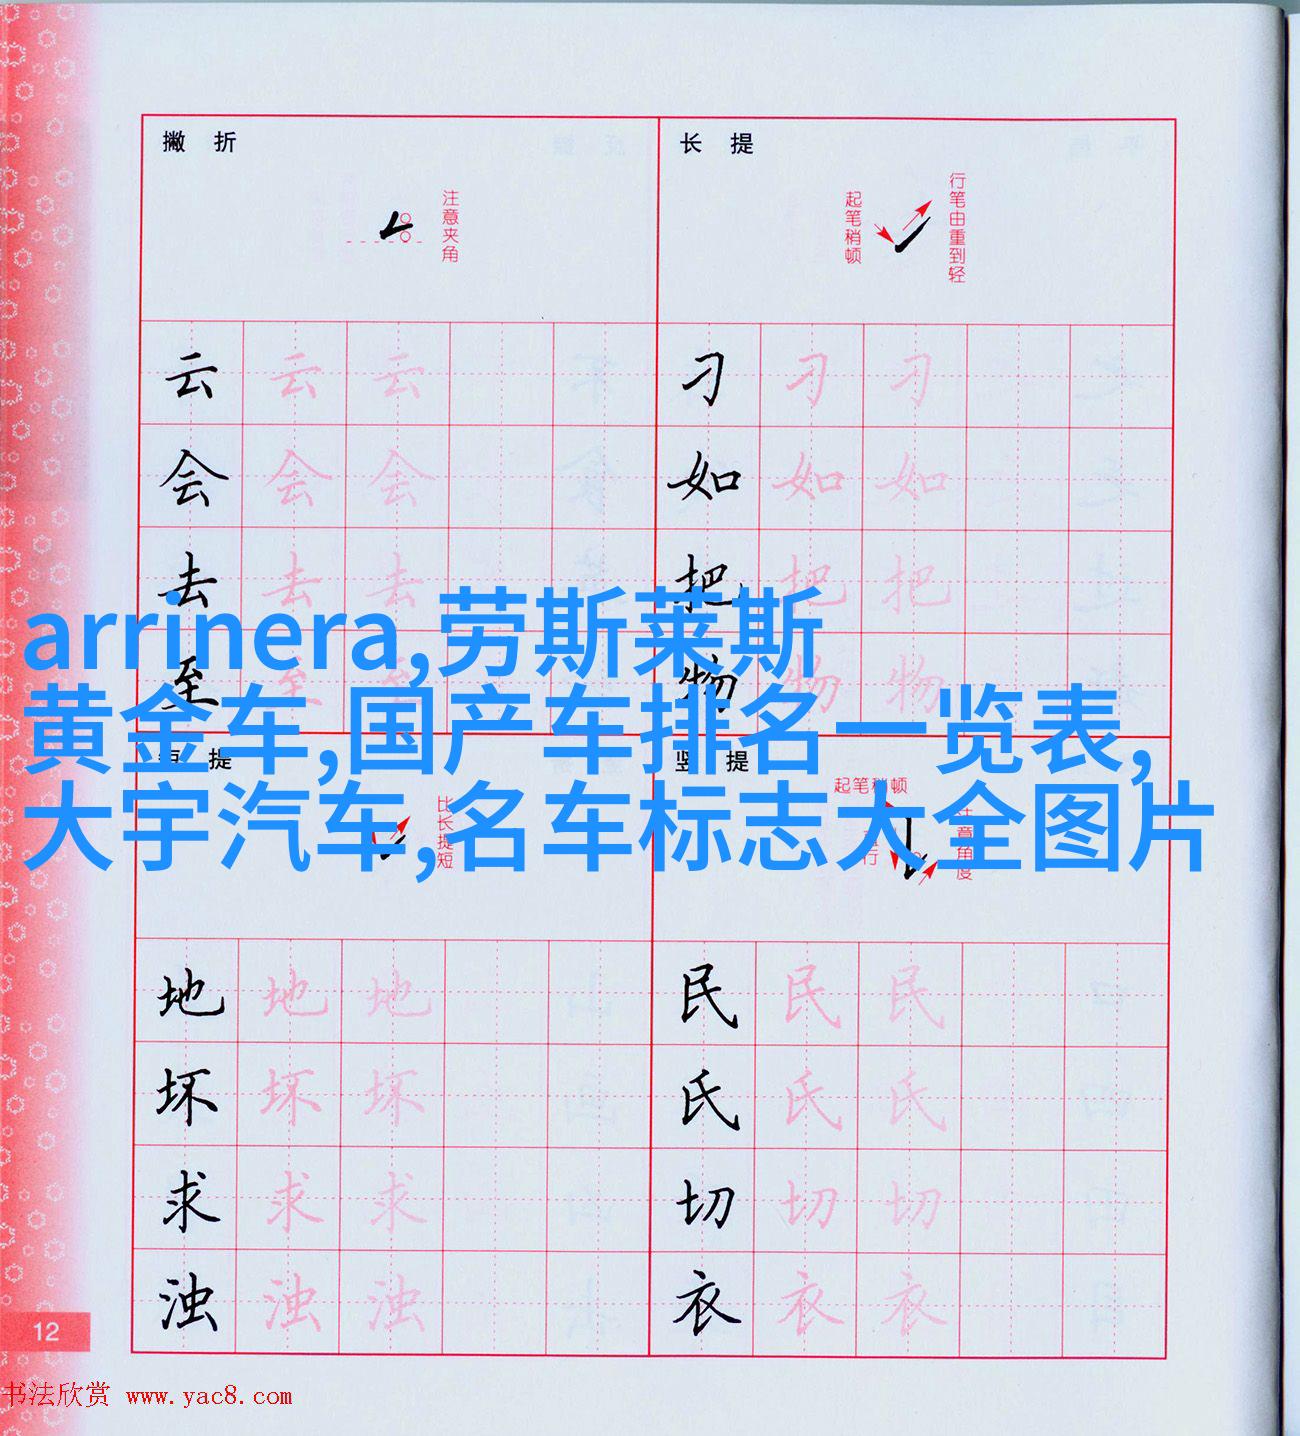 撇 折
注意夹角
云 云 云
会 会 会
去 去 去
至 至 至
长 提
起笔稍顿
行笔由重到轻
刁 刁 刁
如 如 如
把 把 把
物 物 物
arrinera,劳斯莱斯
黄金车,国产车排名一览表,
大宇汽车,名车标志大全图片
短 提
比长提短
地 地 地
坏 坏 坏
求 求 求
浊 浊 浊
竖 提
起笔稍顿
注意角度
民 民 民
氏 氏 氏
切 切 切
衣 衣 衣
12
书法欣赏 www.yac8.com